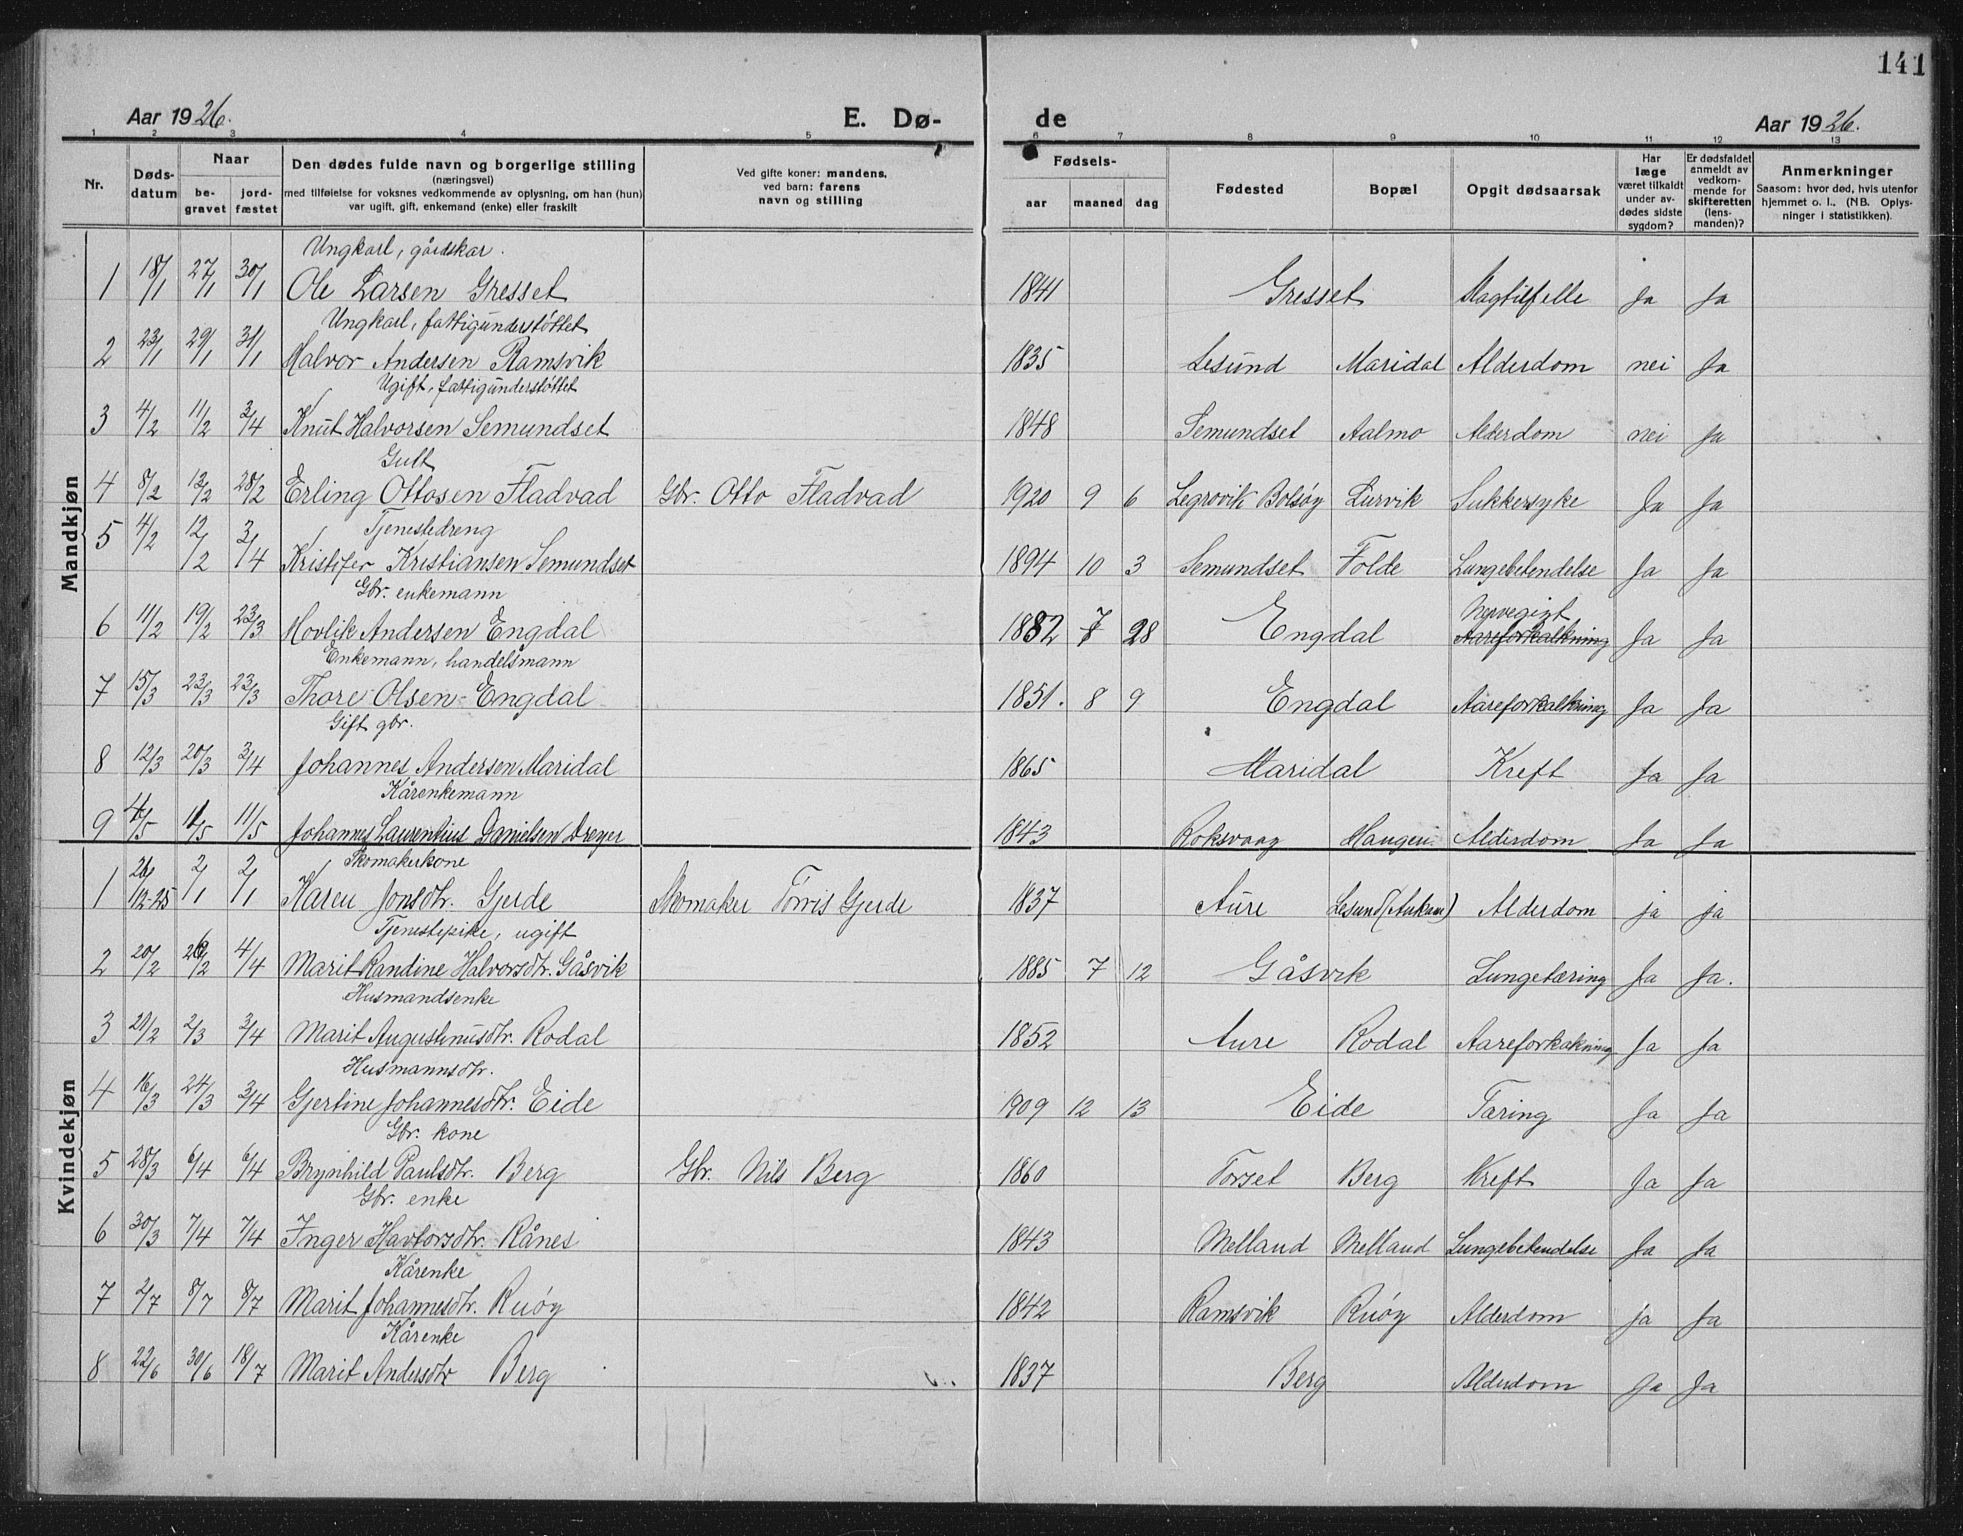 141
Aar 1926.
E. Dø-
de
Aar 1926.
1 2 3 4 5 6 7 8 9 10 11 12 13
Nr.
Døds-
datum
Naar
be-
gravet
jord-
fæstet
Den dødes fulde navn og borgerlige stilling
(næringsvei)
med tilføielse for voksnes vedkommende av oplysning, om han (hun)
var ugift, gift, enkemand (enke) eller fraskilt
Ved gifte koner: mandens,
ved barn: farens
navn og stilling
Fødsels-
aar maaned dag
Fødested
Bopæl
Opgit dødsaarsak
Har
læge
været tilkaldt
under av-
dødes sidste
sygdom?
Er dødsfaldet
anmeldt av
vedkom-
mende for
skifteretten
(lens-
manden)?
Anmerkninger
Saasom: hvor død, hvis utenfor
hjemmet o. l., (NB. Oplys-
ninger i statistikken).
Mandkjøn
Ungkarl, gårdskar.
1 18/1 27/1 30/1 Ole Larsen Gresset 1841 Gresset Slagtilfelle Ja Ja
Ungkarl, fattigunderstøttet
2 23/1 29/1 31/1 Halvor Andersen Ramsvik 1835 Lesund Maridal Alderdom nei Ja
Ugift, fattigunderstøttet
3 4/2 11/2 3/4 Knut Halvorsen Semundset 1848 Semundset Aalmo Alderdom nei Ja
Gutt
4 8/2 13/2 28/2 Erling Ottosen Fladvad Gbr. Otto Fladvad 1920 9 6 Legrovik Bolsøy Lurvik Sukkersyke Ja Ja
Tjenestedreng
5 4/2 12/2 3/4 Kristofer Kristiansen Semundset 1894 10 3 Semundset Folde Lungebetendelse Ja Ja
Gbr. enkemann
Nervegigt
6 11/2 19/2 23/3 Hovlik Andersen Engdal 1832 7 28 Engdal Aareforkalkning Ja Ja
Enkemann, handelsmann
7 15/3 23/3 23/3 Thore Olsen Engdal 1851. 8 9 Engdal Aareforkalkning Ja Ja
Gift gbr.
8 12/3 20/3 3/4 Johannes Andersen Maridal 1865 Maridal Kreft Ja Ja
Kårenkemann
9 4/5 11/5 11/5 Johannes Laurentius Danielsen Dreyer 1843 Roksvaag Haugen Alderdom Ja Ja
Kvindekjøn
Skomakerkone
1 26/12-25 2/1 2/1 Karen Jonsdtr. Gjerde Skomaker Torris Gjerde 1837 Aure Lesund Alderdom ja ja
Tjenestepike, ugift
2 20/2 26/2 4/4 Marit Randine Halvorsdtr. Gåsvik 1885 7 12 Gåsvik Lungetæring Ja Ja.
Husmandsenke
3 21/2 2/3 3/4 Marit Augustinusdtr. Rodal 1852 Aure Rodal Aareforkalkning Ja Ja
Husmannsdtr.
4 16/3 24/3 3/4 Gjertine Johannesdtr. Eide 1909 12 13 Eide Tæring Ja Ja
Gbr. kone
5 28/3 6/4 6/4 Brynhild Paulsdtr. Berg Gbr. Nils Berg 1860 Torset Berg Kreft Ja Ja
Gbr. enke
6 30/3 7/4 7/4 Inger Havtorsdtr. Rånes 1843 Melland Melland Lungebetendelse Ja Ja
Kårenke
7 2/7 8/7 8/7 Marit Johannesdtr. Ruøy 1842 Ramsvik Ruøy Alderdom ja Ja
Kårenke
8 22/6 30/6 18/7 Marit Andersdtr Berg 1837 Berg Alderdom Ja Ja